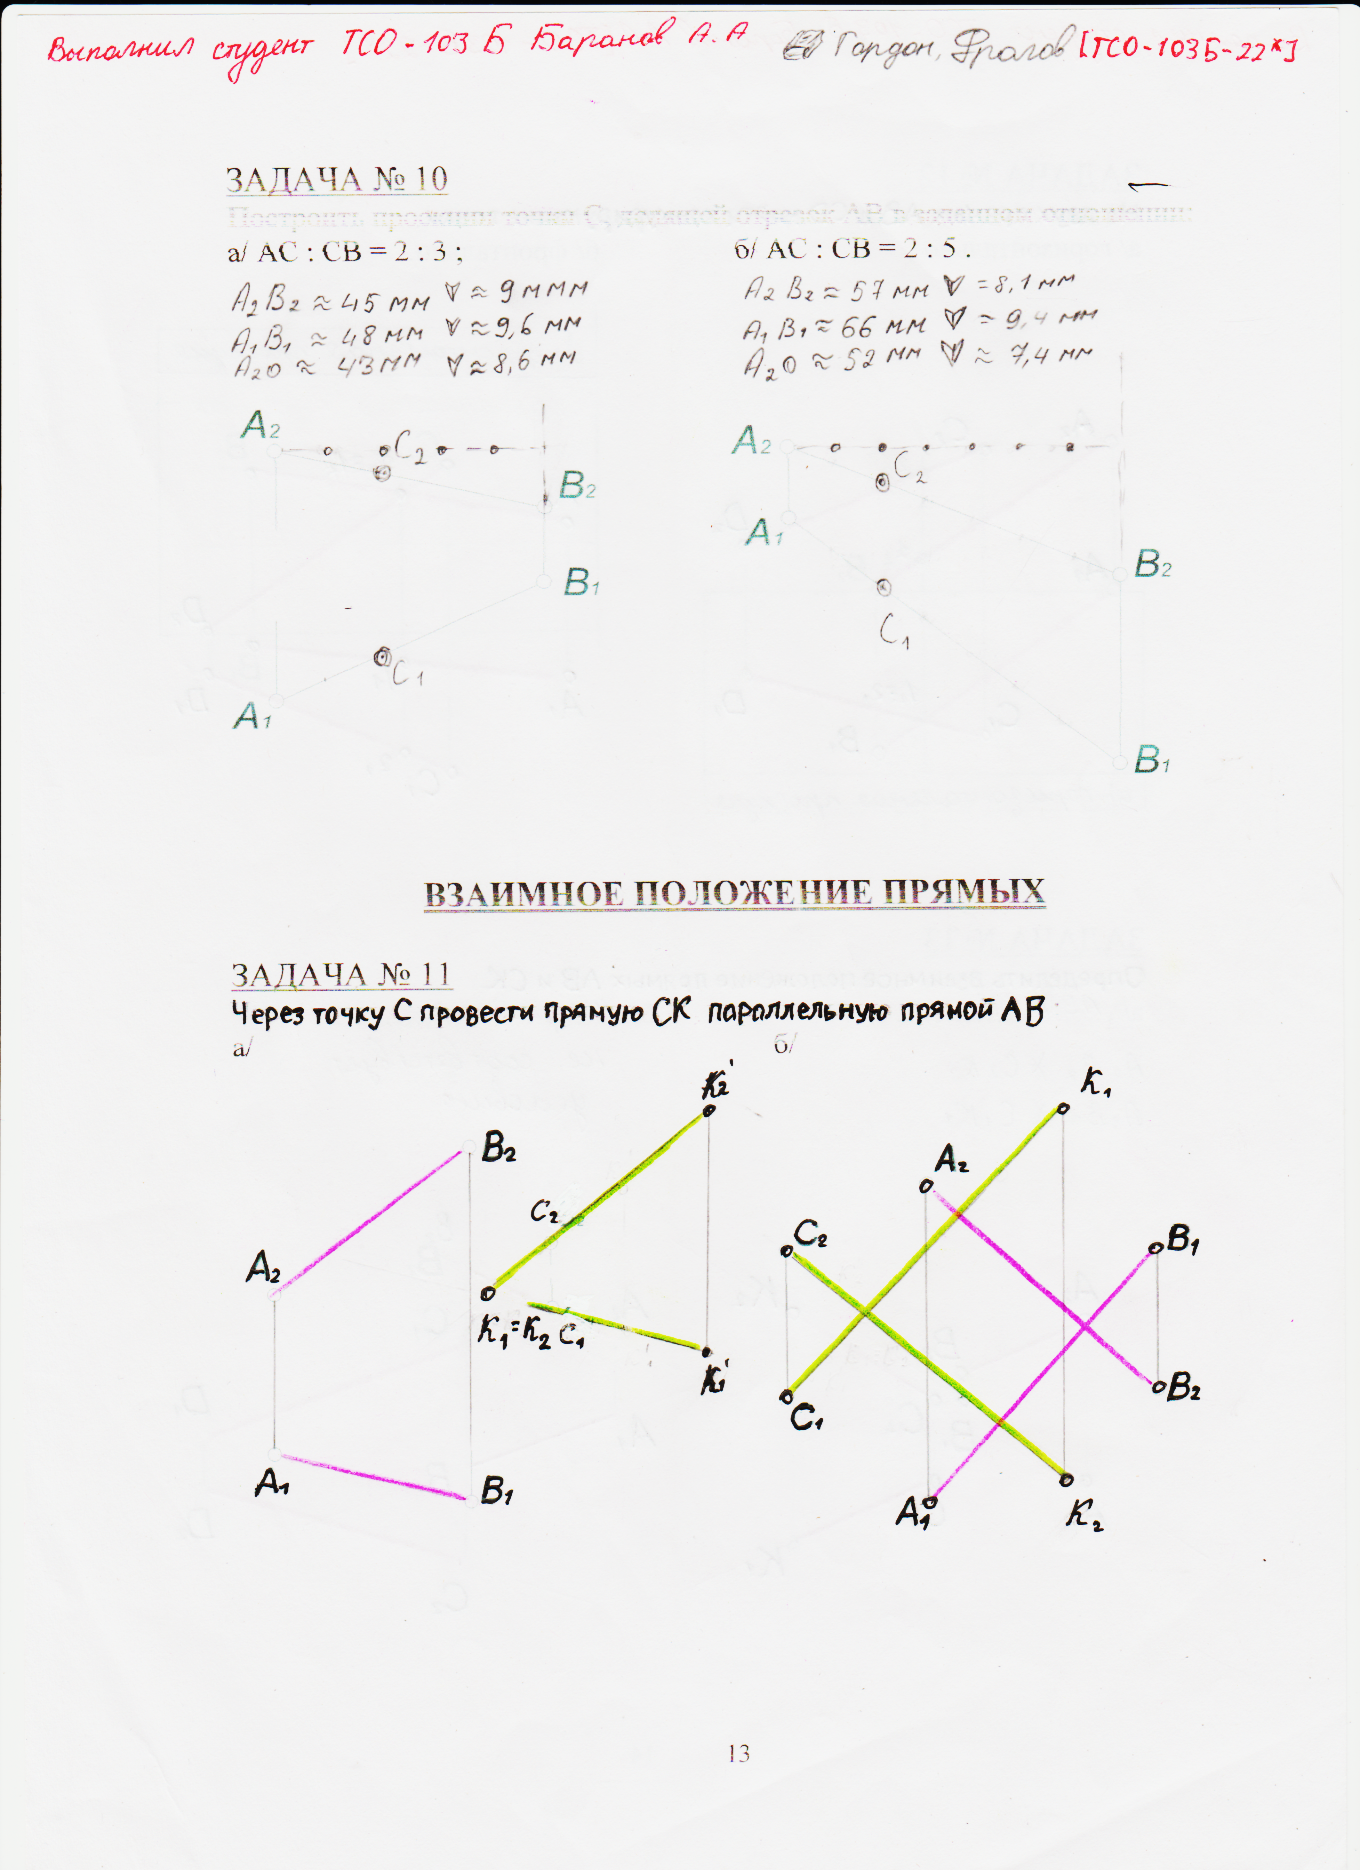 Выполнил студент ТСО-103 Б Баранов А.А Гордон, Фролов [ТСО-103Б-22*]
ЗАДАЧА № 10
Построить проекции точки С, делящей отрезок АВ в заданном отношении:
а/ АС : СВ = 2 : 3 ;
б/ АС : СВ = 2 : 5 .
A₂B₂ ≈ 45 мм ∀ ≈ 9 ммм
A₁B₁ ≈ 48 мм ∀ ≈ 9,6 мм
A₂0 ≈ 43 мм ∀ ≈ 8,6 мм
A₂B₂ ≈ 57 мм ∀ = 8,1 мм
A₁B₁ ≈ 66 мм ∀ = 9,4 мм
A₂0 ≈ 52 мм ∀ ≈ 7,4 мм
A₂
C₂
B₂
B₁
C₁
A₁
A₂
C₂
A₁
B₂
C₁
B₁
ВЗАИМНОЕ ПОЛОЖЕНИЕ ПРЯМЫХ
ЗАДАЧА № 11
Через точку С провести прямую СК параллельную прямой АВ
а/
б/
K₂'
B₂
C₂
A₂
K₁=K₂ C₁
K₁'
A₁
B₁
K₁
A₂
C₂
B₁
B₂
C₁
A₁
K₂
13